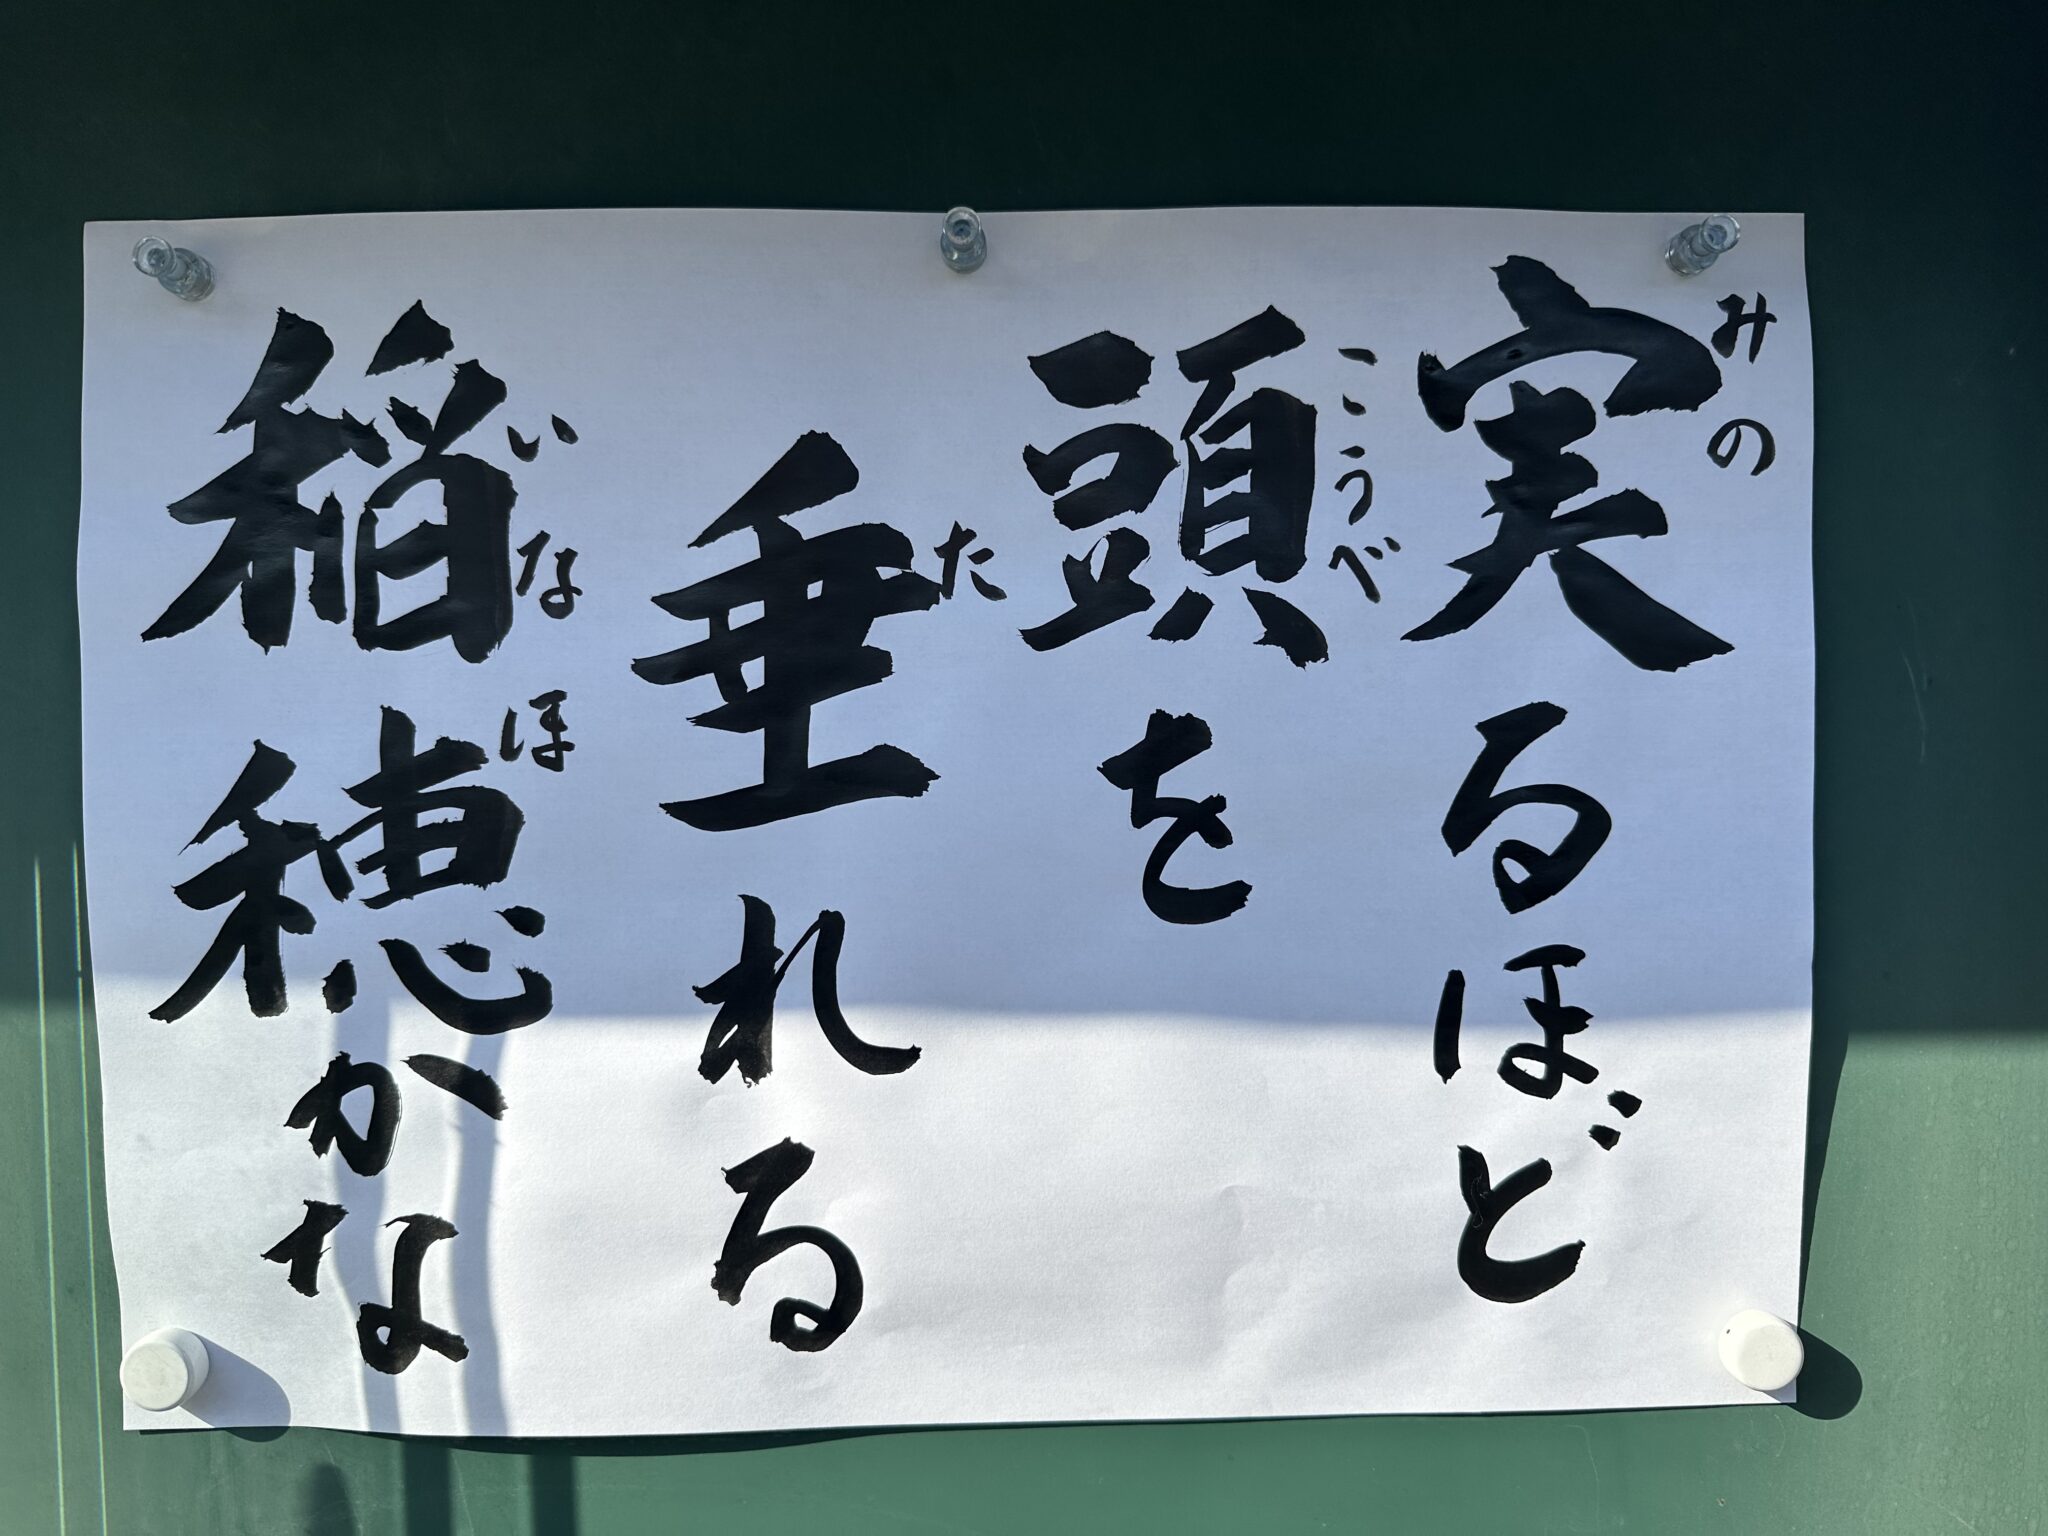 実るほど
みの
頭を
こうべ
垂れる
た
稲穂かな
いなほ